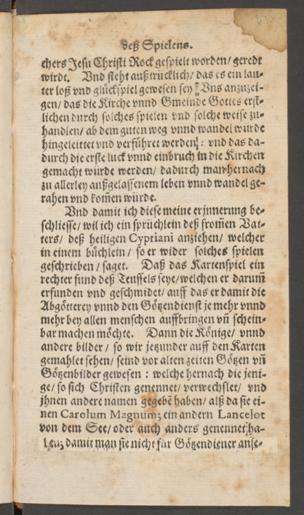 deß Spielens.
chers Jesu Christi Rock gespielt worden/ geredt
wirdt. Vnd steht außtrücklich/ das es ein lau-
ter loß vnd glückspiel gewesen sey Vns anzuzei-
gen/ das die Kirche vnnd Gmeinde Gottes erst-
lichen durch solches spielen vnd solche weise zu-
handlen/ ab dem guten weg vnnd wandel wurde
hingeleittet vnd verführet werden: vnd das da-
durch die erste luck vnnd einbruch in die Kirchen
gemacht wurde werden/ dadurch man hernach
zu allerley außgelassenem leben vnnd wandel ge-
rahen vnd kom̄en würde.
Vnd damit ich diese meine erjnnerung be-
schliesse/ wil ich ein sprüchlein deß from̄en Vat-
ters/ deß heiligen Cypriani anziehen/ welcher
in einem büchlein/ so er wider solches spielen
geschrieben/ saget. Daß das Kartenspiel ein
rechter fund deß Teuffels seye/ welchen er darum̄
erfunden vnd geschmidet/ auff das er damit die
Abgötterey vnnd den Götzendienst je mehr vnnd
mehr bey allen menschen auffbringen vn̄ schein-
bar machen möchte. Dann die Könige/ vnnd
andere bilder/ so wir jetzunder auff den Karten
gemahlet sehen/ seind vor alten zeiten Götzen vn̄
Götzenbilder gewesen: welche hernach die jeni-
ge/ so sich Christen genennet/ verwechslet/ vnd
jhnen andere namen gegebē haben/ alß da sie ei-
nen Carolum Magnum; ein andern Lancelot
von dem See/ oder auch anders genennet ha-
ben; damit man sie nicht für Götzendiener anse-